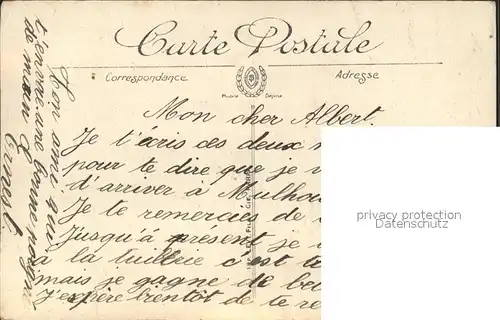 Carte Postale
Correspondance
Adresse
Mon cher Albert.
Je t'écris ces deux m
pour te dire que je v
d'arriver à Mulhou
Je te remercies de
Jusqu'à présent je
à la tuillerie c'est t
mais je gagne de be
J'espère bientôt de te re
Ton ami qui
t'envoie une bonne poigné
de main
Ernest
privacy protection